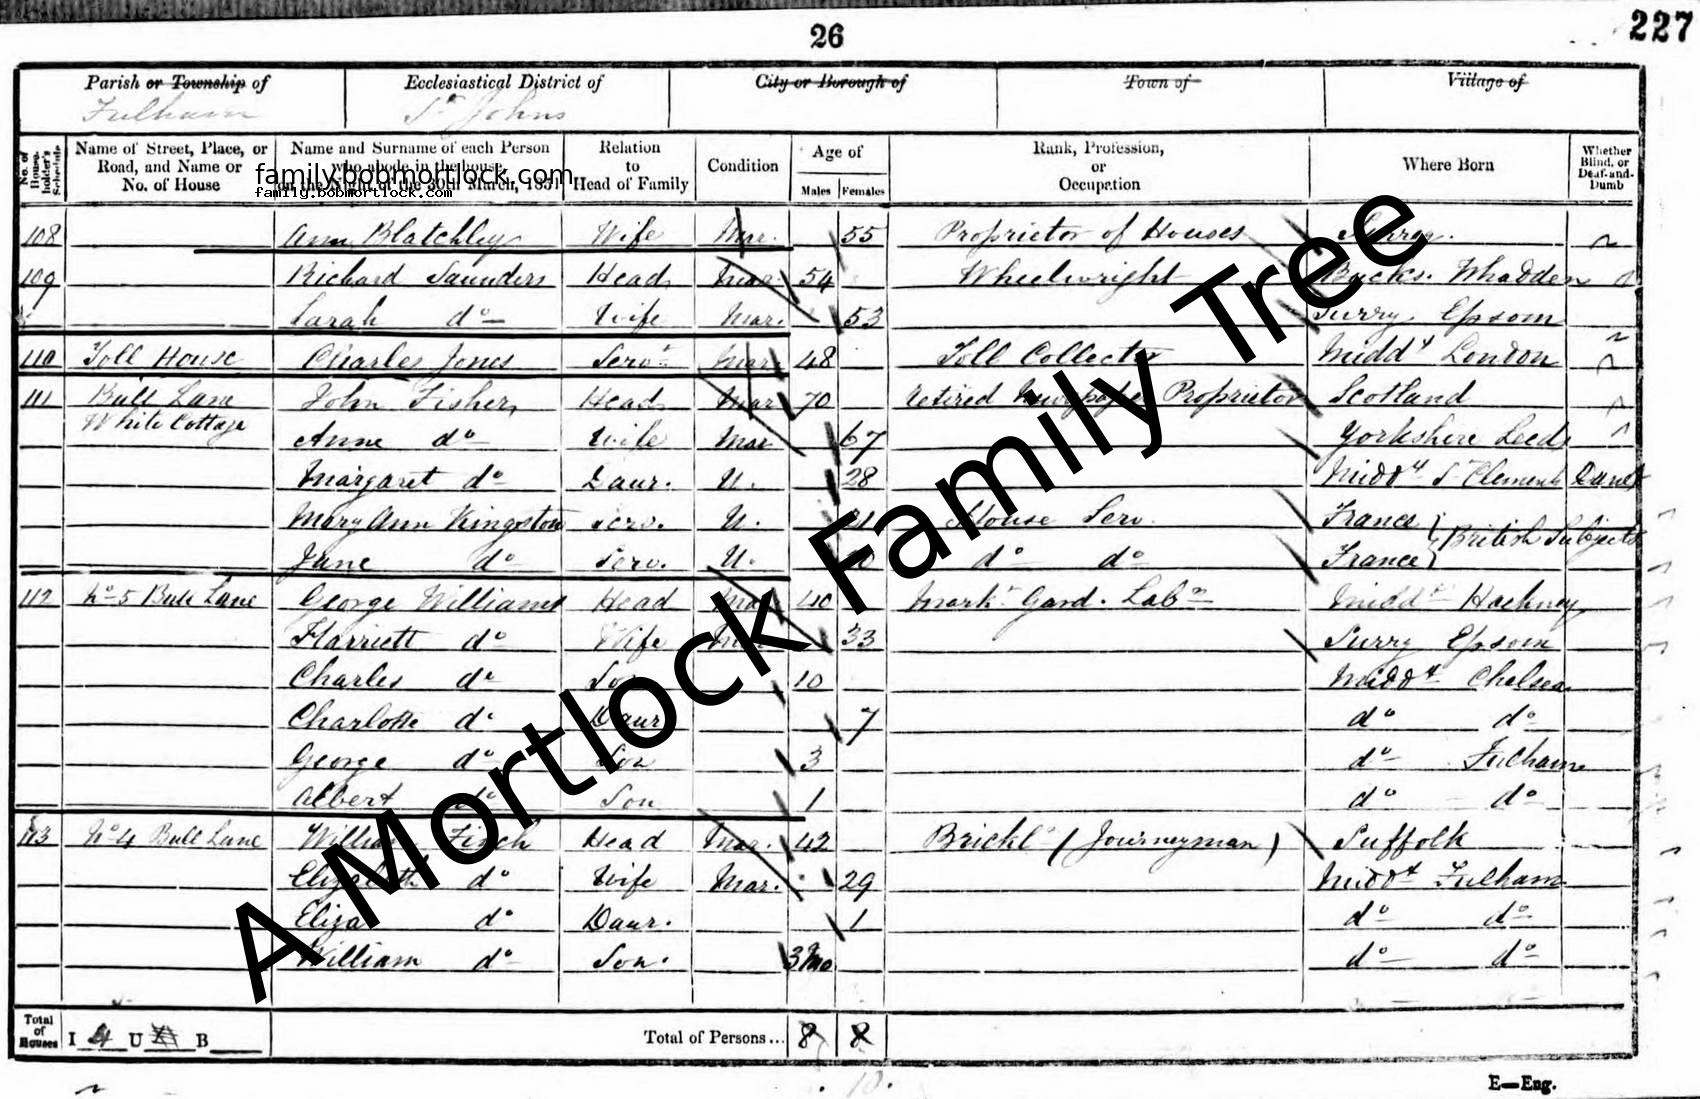 26
227
Parish or Township of Ecclesiastical District of City or Borough of Town of Village of
Fulham St Johns
No. of House-holder's Schedule Name of Street, Place, or Road, and Name or No. of House Name and Surname of each Person who abode in the house, on the Night of the 30th March, 1851 Relation to Head of Family Condition Age of Males Females Rank, Profession, or Occupation Where Born Whether Blind, or Deaf-and-Dumb
family.bobmortlock.com
family.bobmortlock.com
108 Ann Blatchley Wife Mar. 55 Proprietor of Houses Surrey.
109 Richard Saunders Head Mar. 54 Wheelwright Bucks. Whadden
Sarah do Wife Mar. 53 Surry. Epsom
110 Toll House Charles Jones Servt Mar. 48 Toll Collector Middx London
111 Bull Lane John Fisher Head Mar 70 retired Newspaper Proprietor Scotland
White Cottage Anne do Wife Mar 67 Yorkshire Leeds
Margaret do Daur. U. 28 Middx St Clement Danes
Mary Ann Kingston Serv. U. 21 House Serv. France } British Subjects
Jane do Serv. U. do do France }
112 No 5 Bull Lane George Williams Head Mar 40 Markt Gard. Labr Middx Hackney
Harriett do Wife Mar 33 Surry Epsom
Charles do Son 10 Middx Chelsea
Charlotte do Daur 7 do do
George do Son 3 do Fulham
Albert do Son 1 do do
113 No 4 Bull Lane William Finch Head Mar. 42 Brickl (Journeyman) Suffolk
Elizabeth do Wife Mar. 29 Middx Fulham
Eliza do Daur. 1 do do
William do Son. 3 Mo do do
Total of Houses I 4 U B Total of Persons... 8 8
E—Eng.
A Mortlock Family Tree